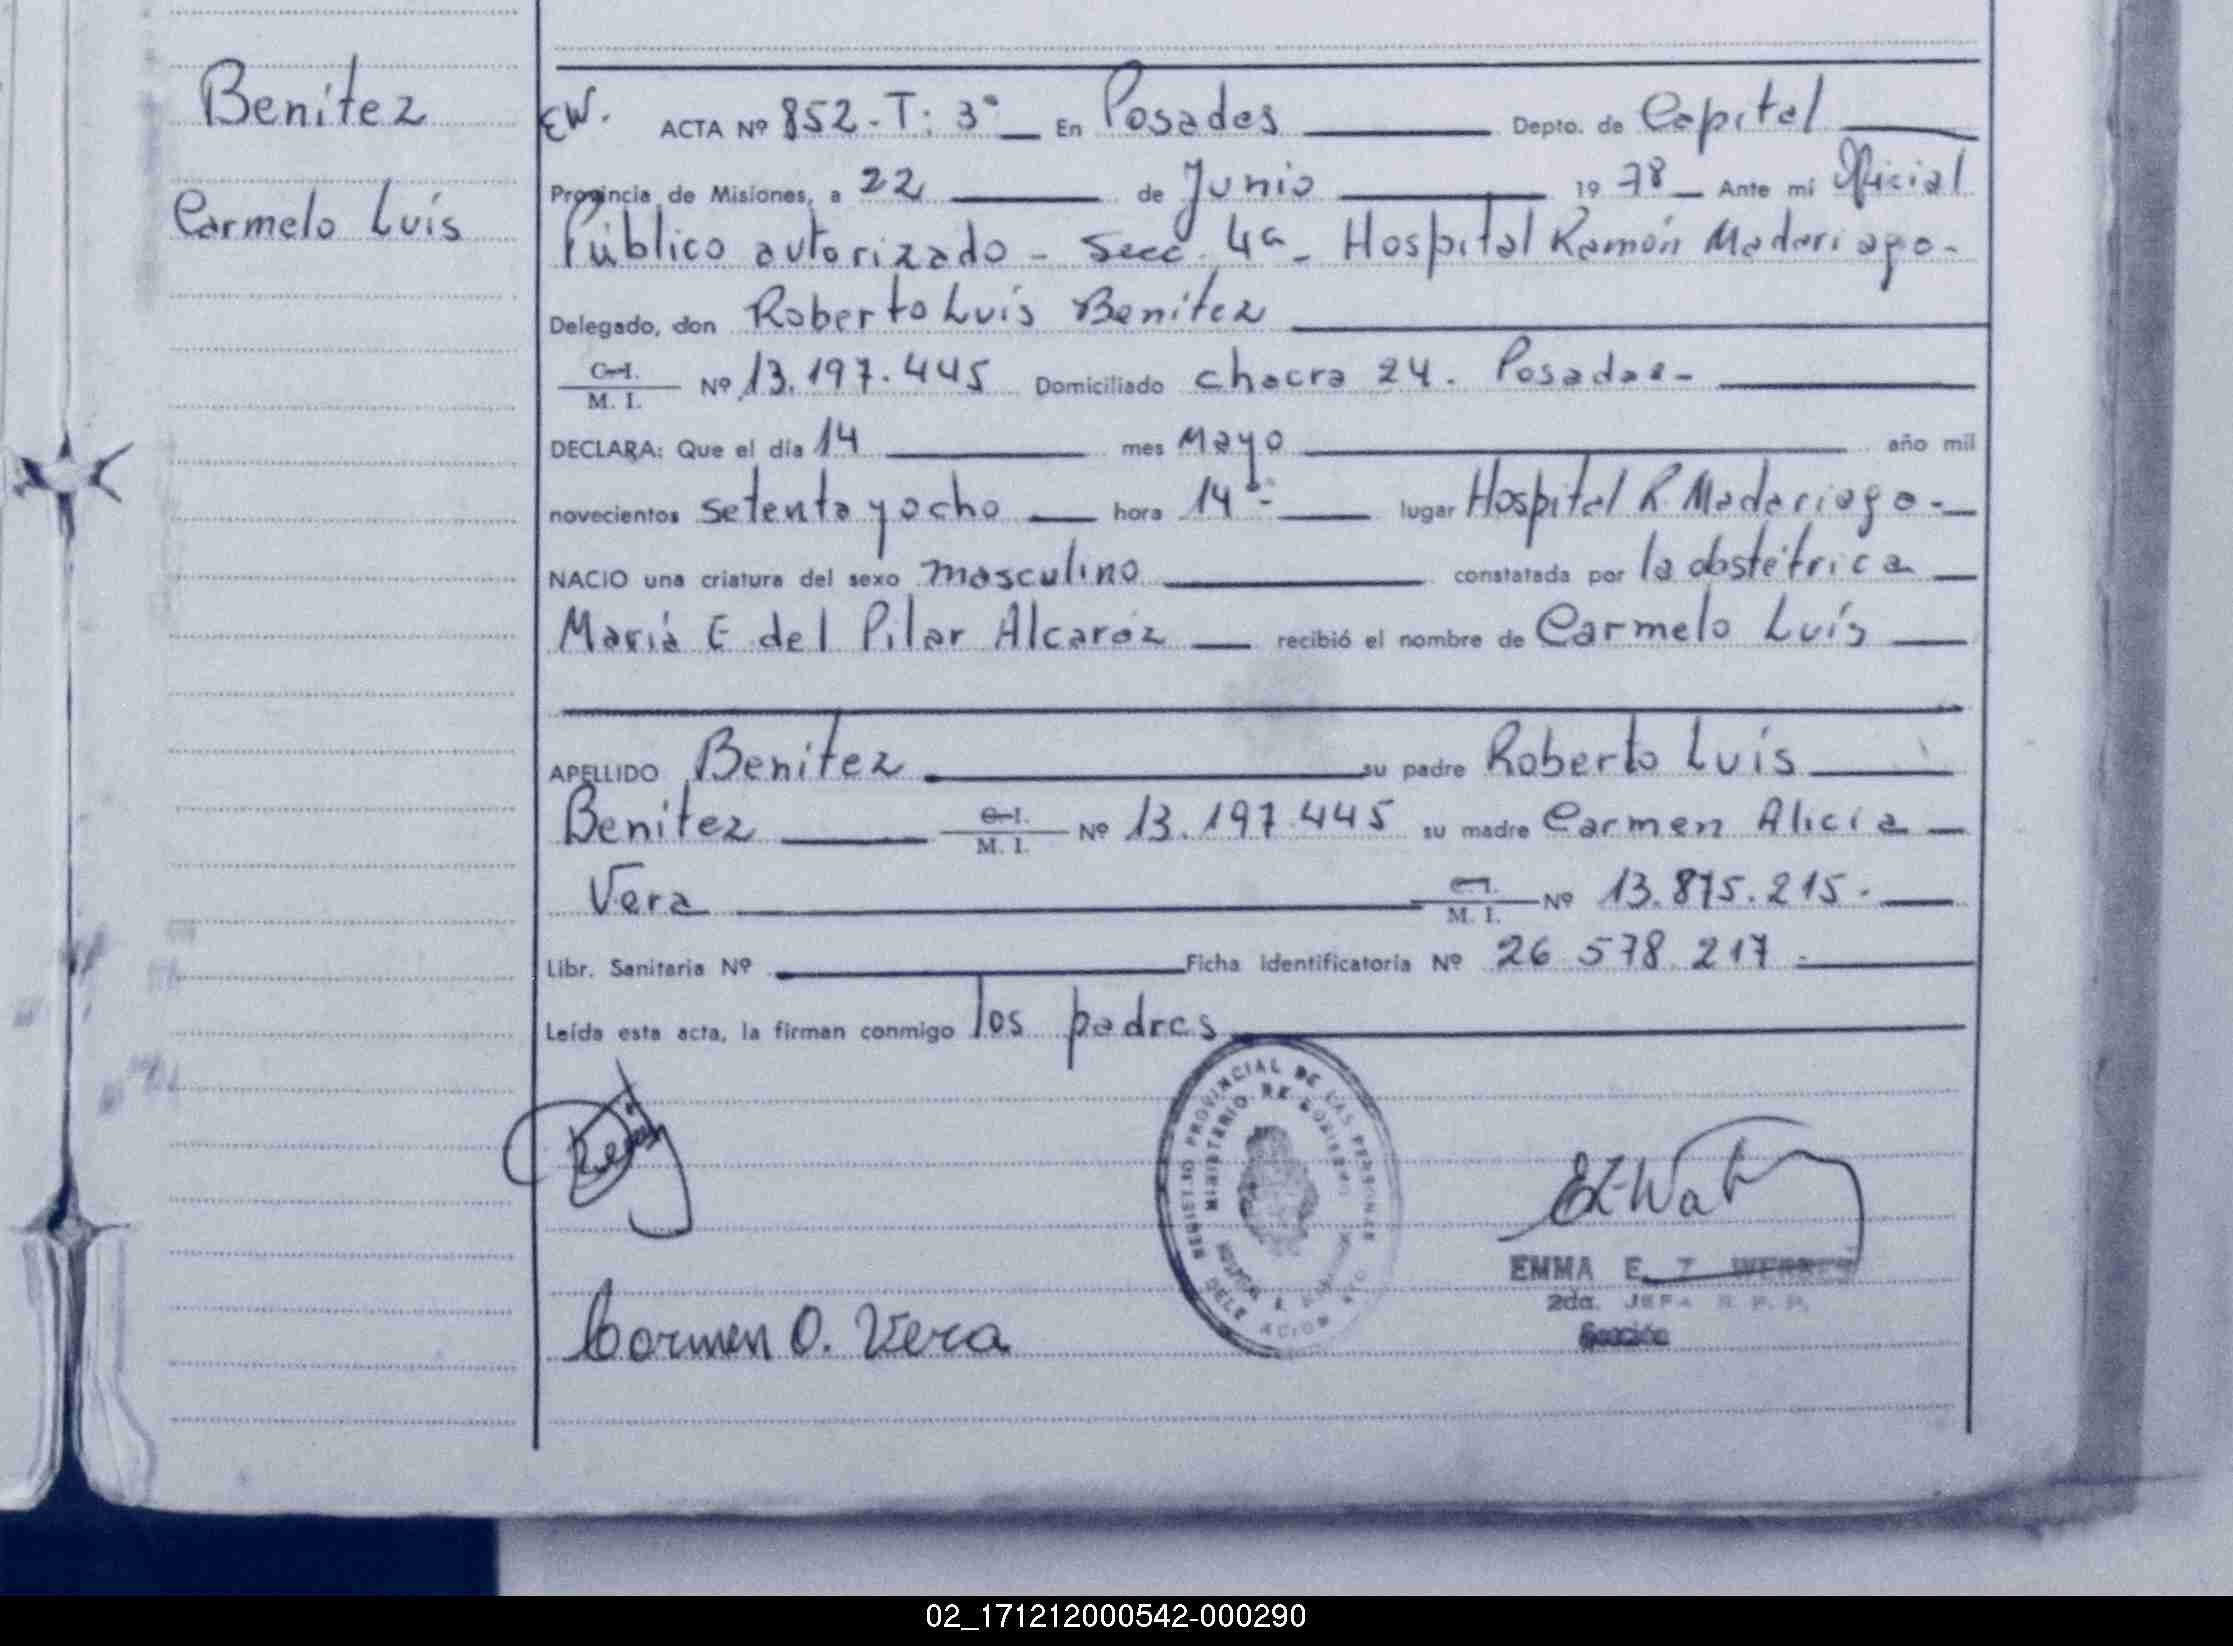 Benítez
Carmelo Luís
EW. ACTA Nº 852-T: 3º En Posadas Depto. de Capital
Provincia de Misiones, a 22 de Junio 1978 Ante mí Oficial
Público autorizado - Secc. 4ª - Hospital Ramón Madariaga -
Delegado, don Roberto Luís Benítez
C.I. M. I. Nº 13.197.445 Domiciliado chacra 24. Posadas -
DECLARA: Que el día 14 mes Mayo año mil
novecientos setenta y ocho hora 14 lugar Hospital R. Madariaga -
NACIO una criatura del sexo masculino constatada por la obstétrica
María E. del Pilar Alcaráz recibió el nombre de Carmelo Luís
APELLIDO Benítez su padre Roberto Luís
Benítez C.I. M. I. Nº 13.197.445 su madre Carmen Alicia
Vera C.I. M. I. Nº 13.875.215.
Libr. Sanitaria Nº Ficha Identificatoria Nº 26 578 217.
Leída esta acta, la firman conmigo los padres
REGISTRO PROVINCIAL DE LAS PERSONAS
MINISTERIO DE GOBIERNO
EMMA E. Z.
2da. JEFA R. P. P.
Sección
Carmen O. Vera
02_171212000542-000290